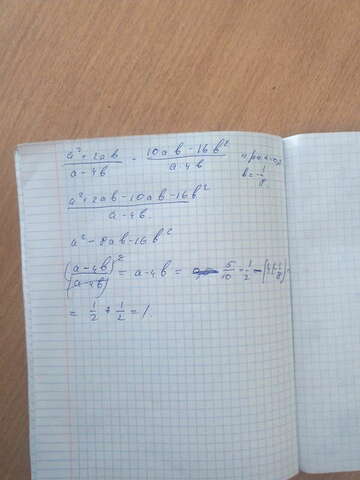 a² + 2ab / a - 4b - 10ab - 16b² / a - 4b при
b = -1/8
a² + 2ab - 10ab - 16b² / a - 4b.
a² - 8ab - 16b²
(a - 4b)² / (a - 4b) = a - 4b = 5/10 = 1/2
= 1/2 + 1/2 = 1.